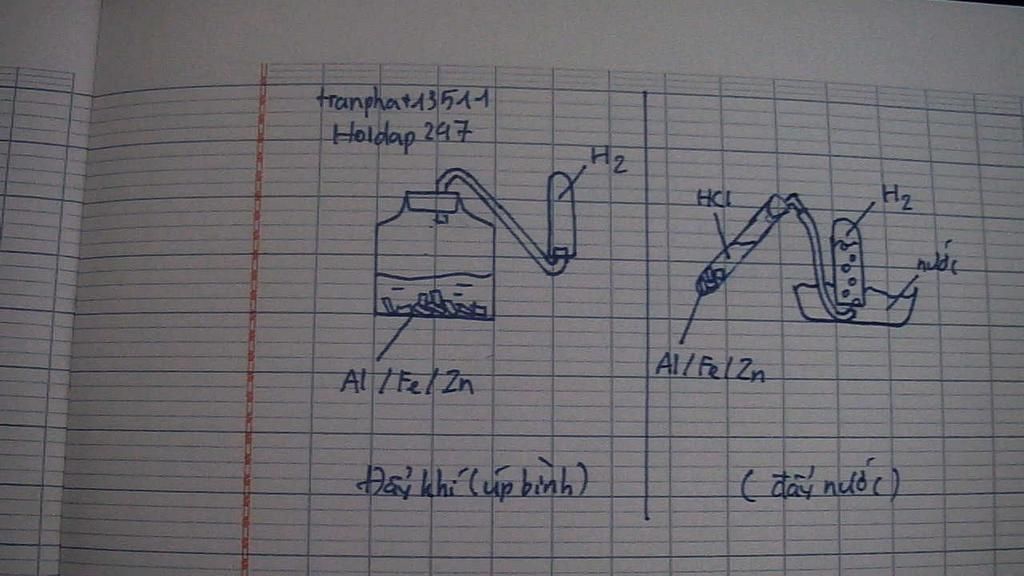 tranphat13511
Hoidap247
H2
Al/Fe/Zn
Đẩy khí (úp bình)
HCl
H2
nước
Al/Fe/Zn
(đẩy nước)